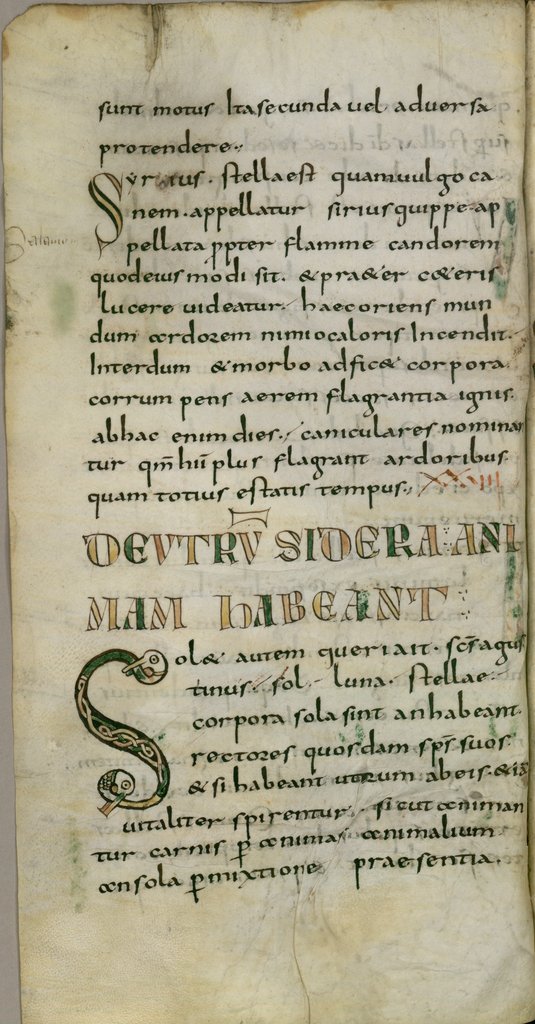 sunt motus Itasecunda uel aduersa
protendere·,
Syrius· stellaest quamuulgo ca
nem·appellatur siriusquippe·ap
pellata ꝓpter flamme candorem
quodeiusmodi sit· &pra&er c&eris
lucere uideatur· haecoriens mun
dum ardorem nimiocaloris Incendit·
Interdum &morbo adfic& corpora·
corrumpens aerem flagrantia ignis·
abhac enim dies· caniculares nominan
tur qm̄ hii plus flagrant ardoribus
quam totius estatis tempus· XXVIII
DEVTRV̄ SIDERA ANI
MAM hABEANT
Sol& autem queri ait· sc̄s agus
tinus· sol· luna· stellae·
corpora solasint anhabeant·
rectores quosdam sp̄s suos·
&sihabeant utrum abeis·&ita
uitaliter spirentur· sicut animan
tur carnis ꝑ animas animalium
ansola ꝑmixtione praesentia·